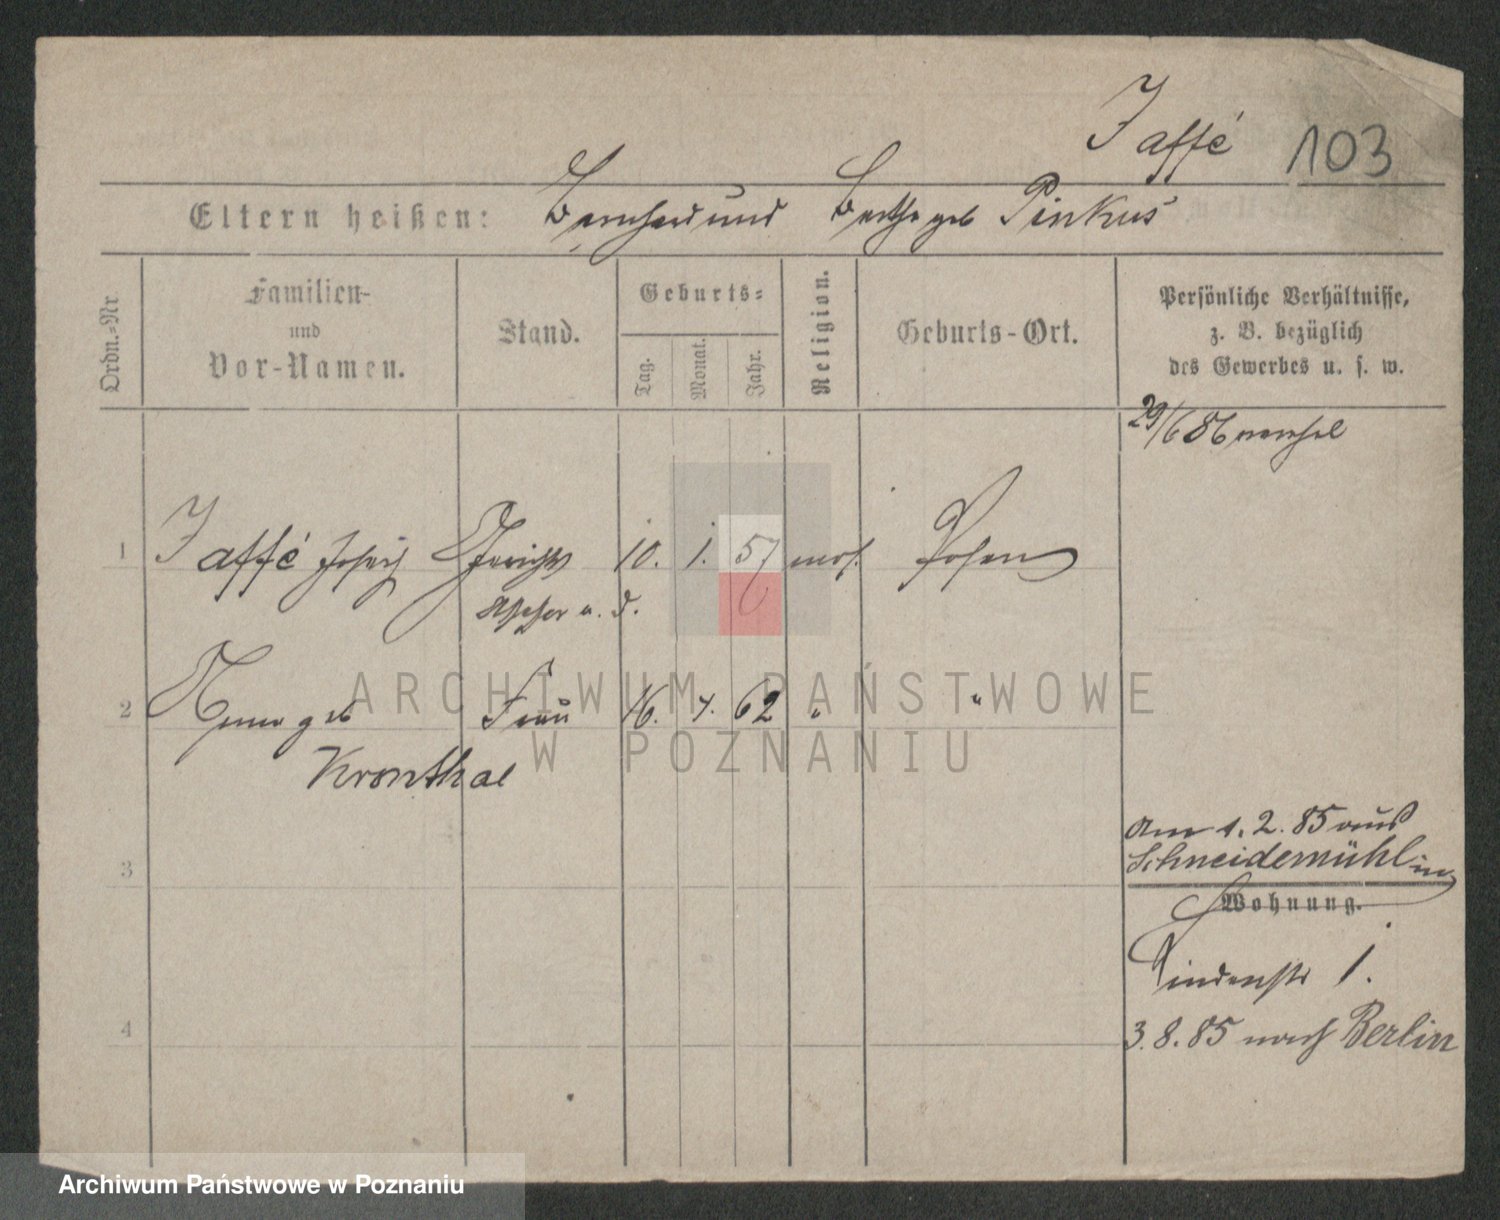 Jaffé 103
Eltern heißen: Bernhard und Bertha geb Pinkus
Ordn.=Nr.
Familien-
und
Vor-Namen.
Stand.
Geburts=
Tag.
Monat.
Jahr.
Religion.
Geburts-Ort.
Persönliche Verhältnisse,
z. B. bezüglich
des Gewerbes u. s. w.
29/6 86
1 Jaffé Joseph Gerichts 10. 1. 57 mos. Posen
Assessor a. D.
2 geb Frau 16. 7. 62 " "
Kronthal
3
4
Am 1. 2. 85 aus
Schneidemühl in
Wohnung.
Lindenstr 1.
3. 8. 85 nach Berlin
ARCHIWUM PAŃSTWOWE
W POZNANIU
Archiwum Państwowe w Poznaniu